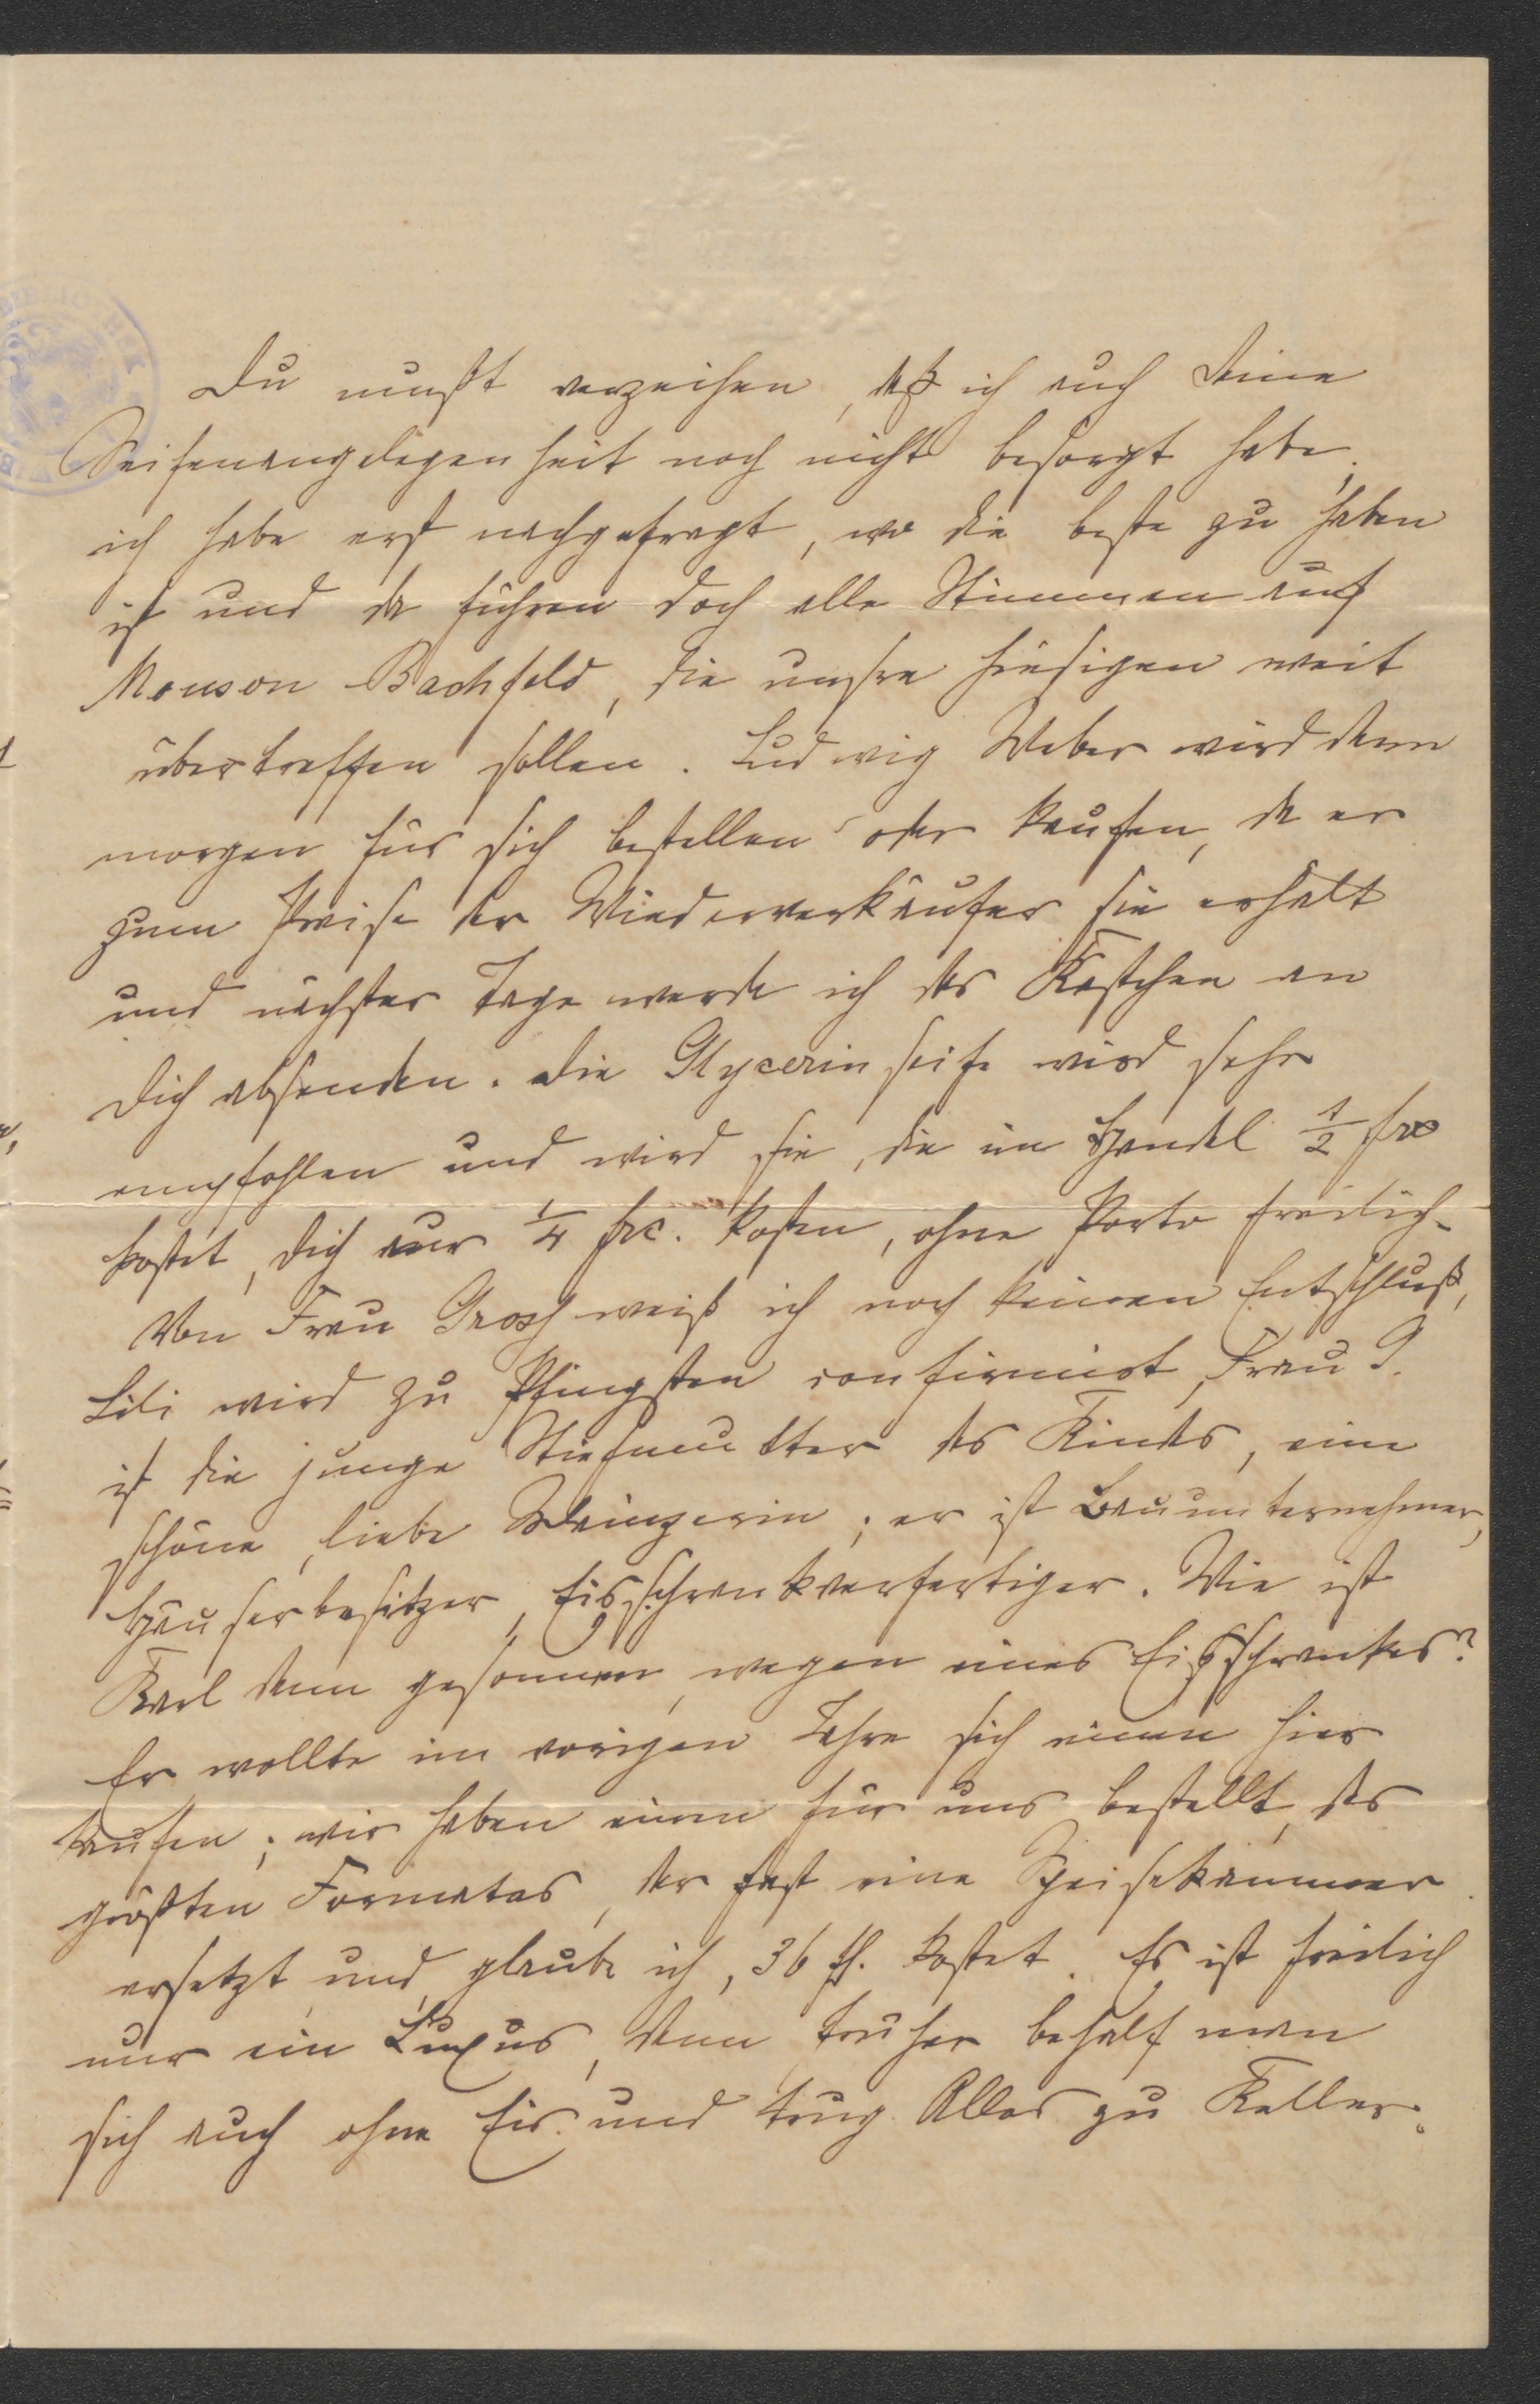 Du mußt verzeihen, daß ich auch Deine
Seifenangelegenheit noch nicht besorgt habe,
ich habe erst nachgefragt, wo die beste zu haben
ist und da führen doch alle Stimmen auf
Mouson Bachfeld, die unsre hiesigen weit
übertreffen sollen. Ludwig Weber wird dann
morgen für sich bestellen oder kaufen, da er
zum Preise der Wiederverkäufer sie erhält
und nächster Tage werde ich das Kästchen an
Dich absenden. Die Glycerinseife wird sehr
empfohlen und wird sie, die im Handel ½ frc
kostet, Dich nur ¼ frc. kosten, ohne Porto freilich.
Von Frau Grosch weiß ich noch keinen Entschluß,
Lili wird zu Pfingsten confirmirt, Frau G.
ist die junge Stiefmutter des Kindes, eine
schöne, liebe Mainzerin; er ist Bauunternehmer,
Häuserbesitzer, Eisschrankverfertiger. Wie ist
Karl denn gesonnen, wegen eines Eisschrankes?
Er wollte im vorigen Jahre sich einen hier
kaufen; wir haben einen für uns bestellt, des
größten Formates, der fast eine Speisekammer
ersetzt und, glaube ich, 36 fl. kostet. Es ist freilich
nur ein Luxus, denn früher behalf man
sich auch ohne Eis und trug Alles zu Keller.